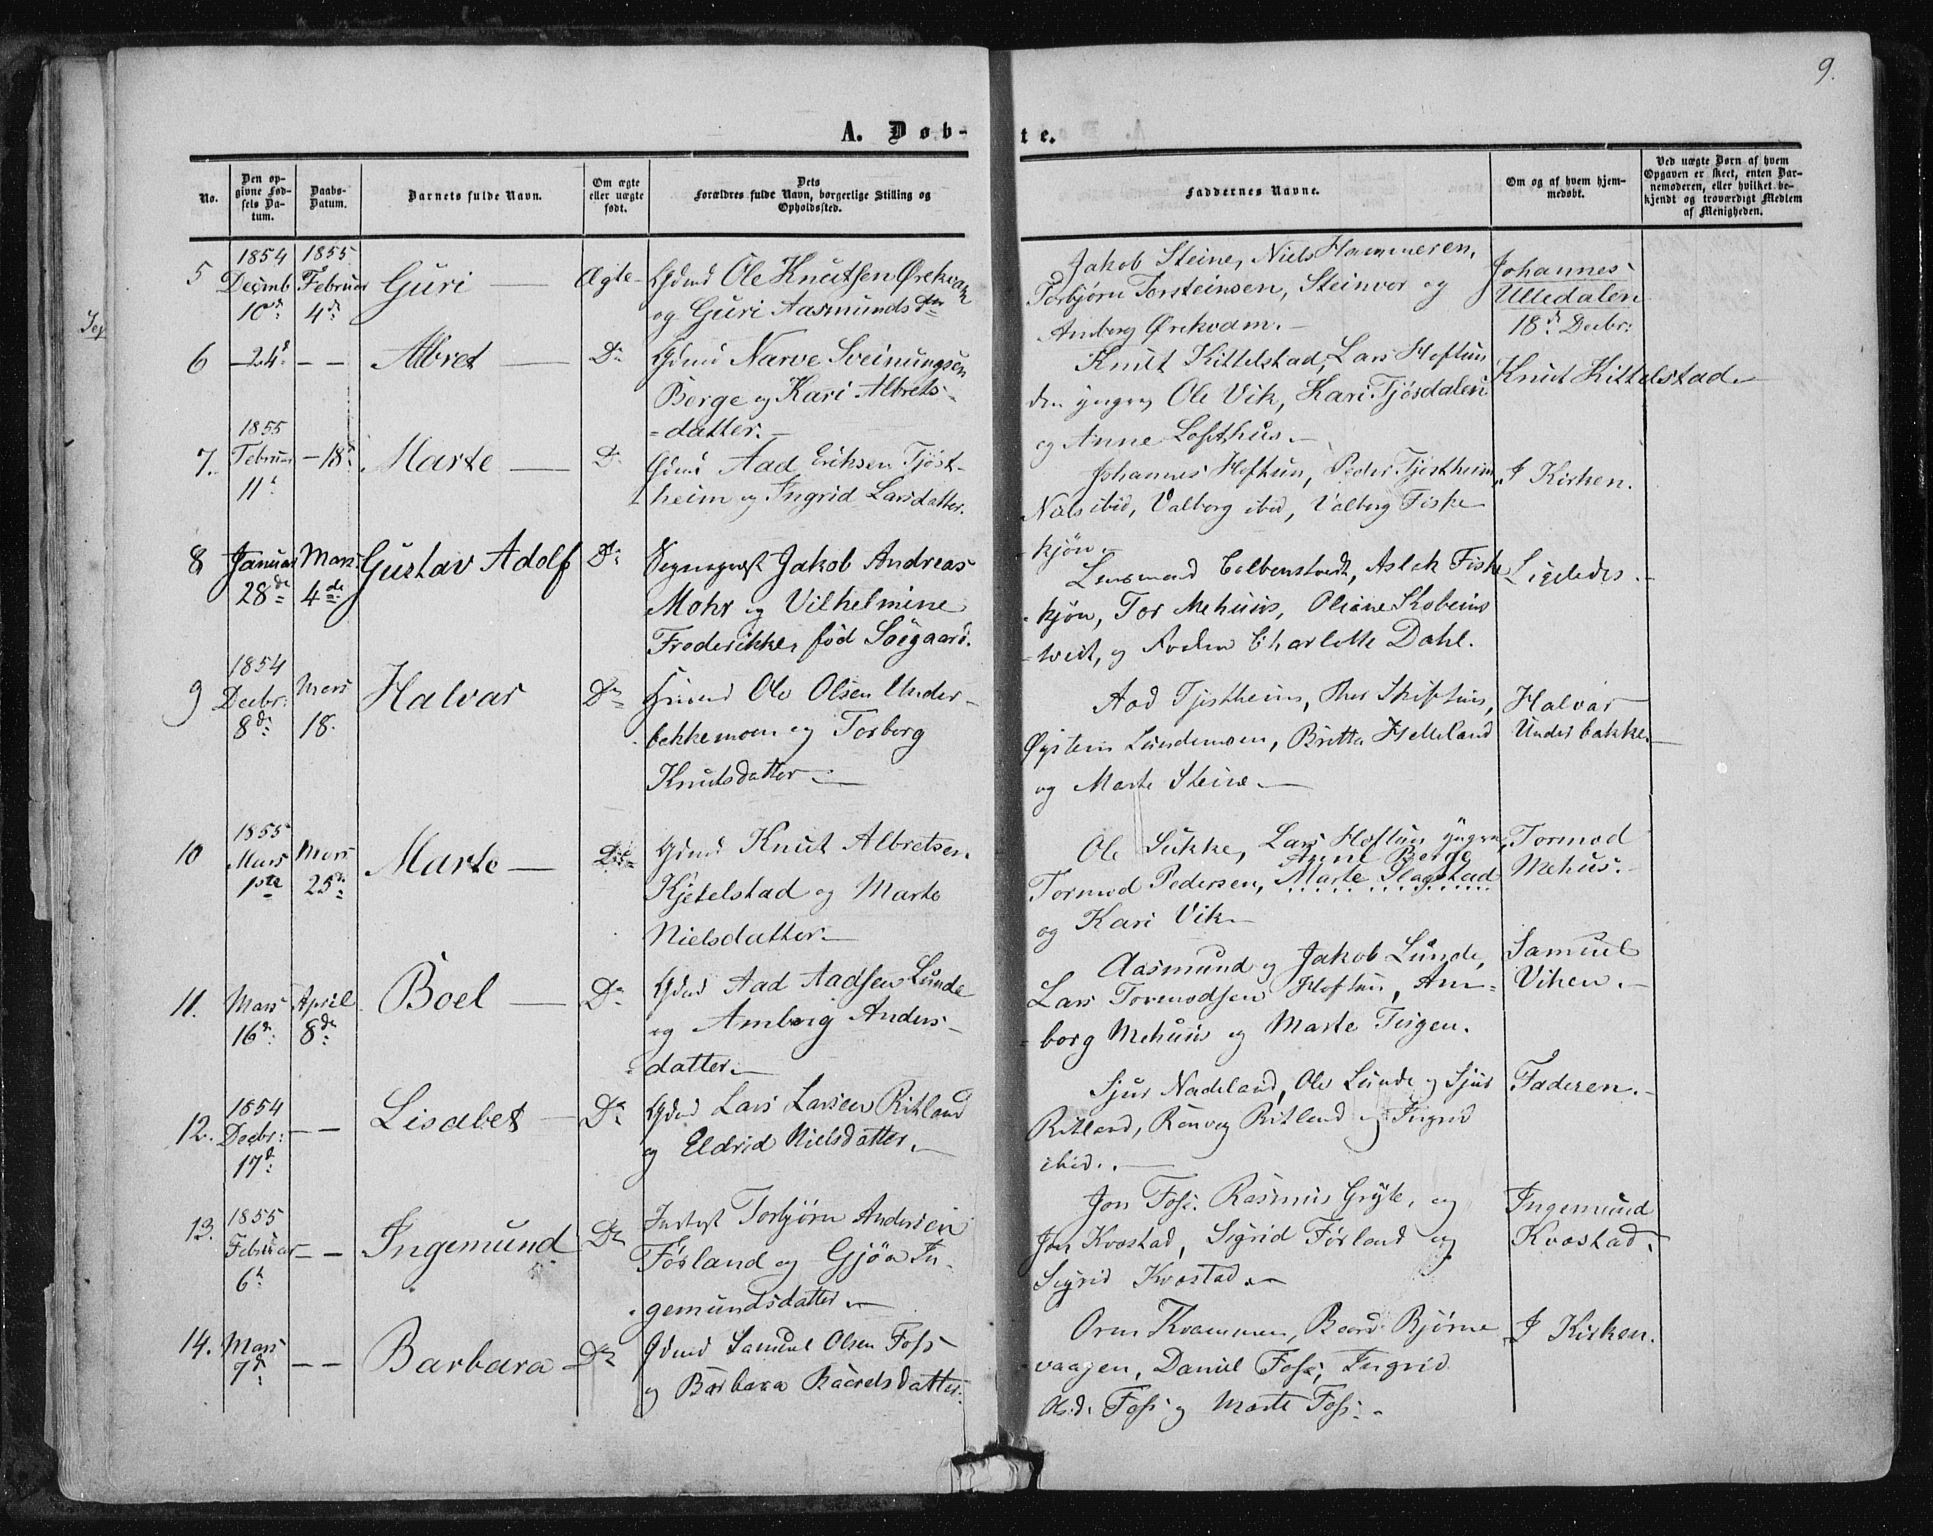 9.
A. Døb-te.
No.
Den op-
givne Fød-
sels Da-
tum.
Daabs-
Datum.
Barnets fulde Navn.
Om ægte
eller uægte
født.
Dets
Forældres fulde Navn, borgerlige Stilling og
Opholdssted.
Faddernes Navne.
Om og af hvem hjem-
medøbt.
Ved uægte Børn af hvem
Opgaven er skeet, enten Bar-
nemoderen, eller hvilket be-
kjendt og troværdigt Medlem
af Menigheden.
5
1854
Decmb
10de
1855
Februar
4de
Guri
Ægte
Gdmd Ole Knutsen Ørekvam
og Guri Aasmundsdtr
Jakob Steine, Niels Hammeren,
Torbjørn Torsteinsen, Steinvor og
Anborg Ørekvam.
Johannes
Ulledalen
18de Decbr:
6
24de
Albret
Do
Gdmd Narve Sveinungsen
Berge og Kari Albrets-
datter.
Knut Kittelstad, Lars Heftun
den yngre, Ole Vik, Kari Tjøsdalen
og Anne Lofthus.
Knut Kittelstad.
7.
1855
Februar
11te
18de
Marte
Do
Gdmd Aad Eriksen Tjøst-
heim og Ingrid Larsdatter.
Johannes Heftun, Peder Tjøstheim,
Niels ibid, Valborg ibid, Valborg Fiske
kjøn.
I Kirken.
8
Januar
28de
Mars
4de
Gustav Adolf
Do
Sognepræst Jakob Andreas
Mohr og Vilhelmine
Frederikke, fød Søegaard.
Lensmand Colbenstvedt, Aslek Fiske
kjøn, Tor Mehuus, Oliane Kobeins
tveit, og Charlotte Dahl.
Ligeledes.
9
1854
Decbr:
8de
Mars
18.
Halvar
Do
Ole Olsen Under-
bekkemoen og Torborg
Knutsdatter
Aad Tjøstheim, Thor Skiftun,
Øystein Lundemoen, Britta Helleland
og Marte Steine.
Halvar
Underbakke.
10
1855
Mars
1ste
Mars
25de
Marte
Do
Gdmd Knut Albretsen
Kjetelstad og Marte
Nielsdatter
Ole Sukke, Lars Heftun yngre,
Anne Berge
Tormod Pedersen, Marte Slagstad
og Kari Vik
Tormod
Mehus.
11.
Mars
16de
April
8de
Boel
Do
Gdmd Aad Aadsen Lunde
og Ambrig Anders-
datter.
Aasmund og Jakob Lunde,
Lars Tormodsen Heftun, An-
borg Mehuus og Marte Tengen.
Samuel
Viken.
12.
1854
Decbr:
17de
Lisabet
Do
Gdmd Lars Larsen Ritland
og Eldrid Nielsdatter.
Sjur Nadeland, Ole Lunde og Sjur
Ritland, Rønveg Ritland og Ingrid
ibid.
Faderen.
13.
1855
Februar
6te
Ingemund
Do
Torbjørn Andersen
Førland og Gjøa In-
gemundsdatter
Jon Foss. Rasmus Gryte, og
Jon Kvastad, Sigrid Førland og
Sigrid Kvastad
Ingemund
Kvastad.
14.
Mars
7de
Barbara
Do
Gdmd Samuel Olsen Foss
og Barbara Baardsdatter.
Orm Kvammen, Baard Bjørne
vaagen, Daniel Foss, Ingrid
Foss og Marte Foss.
I Kirken.